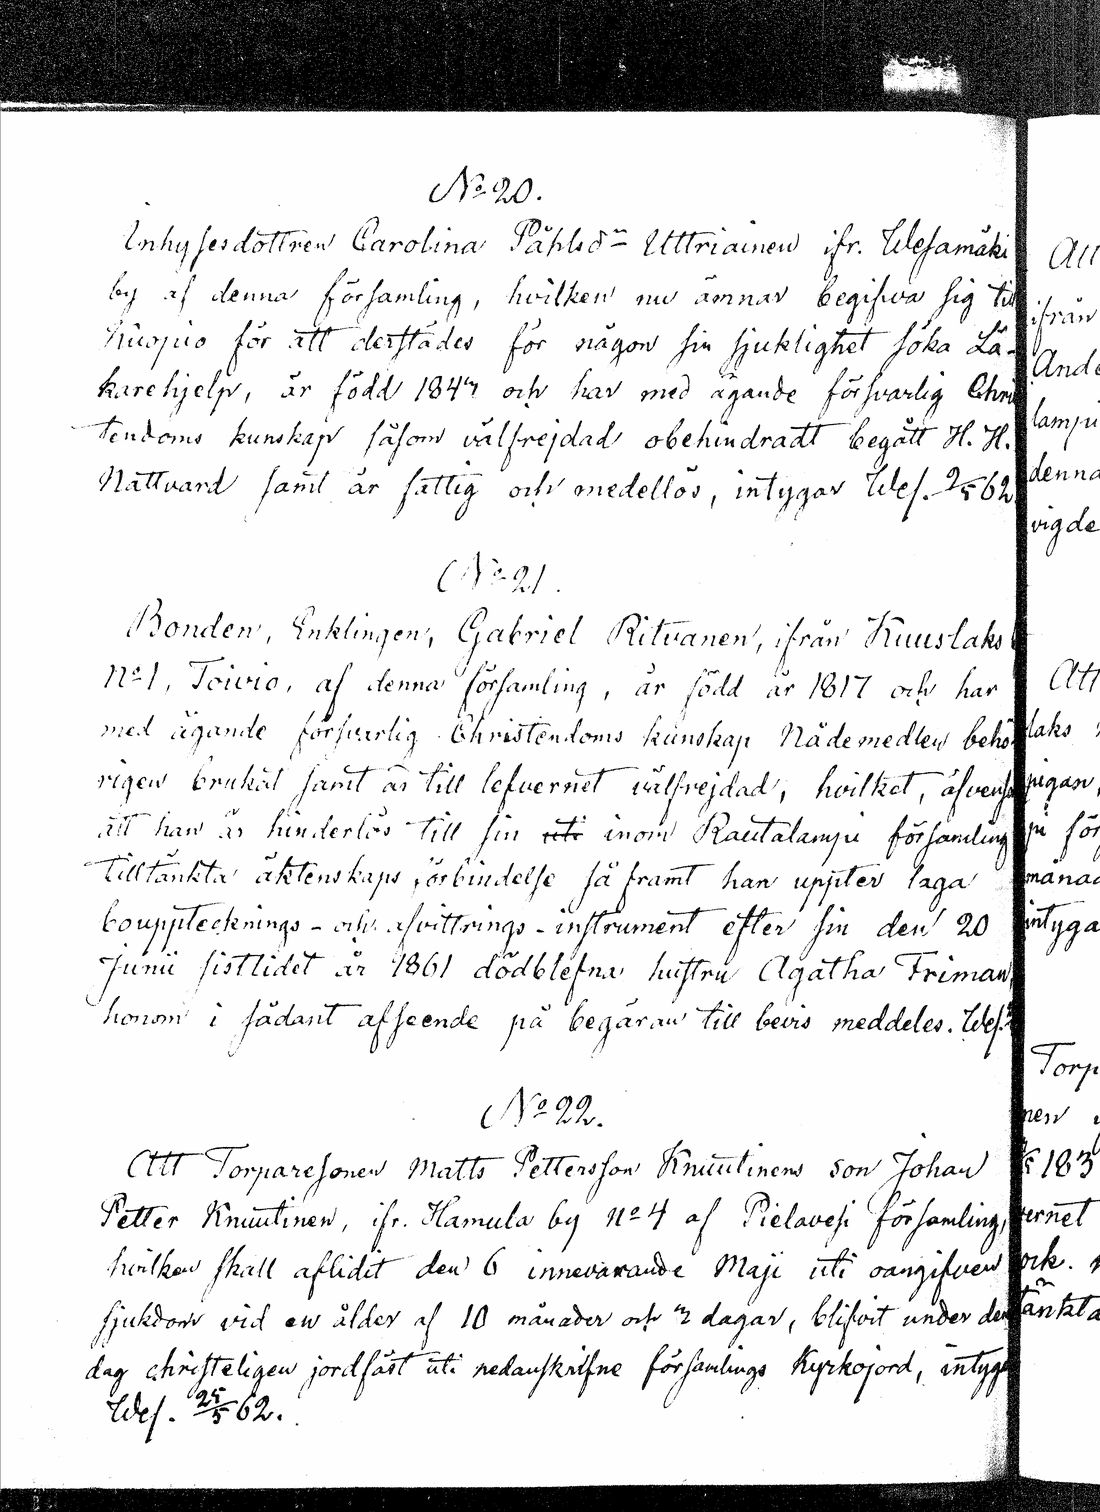 No 20.
Inhysesdottren Carolina Påhlsdr Uttriainen ifr. Wesamäki
by af denna församling, hvilken nu ämnar begifva sig till
Kuopio för att derstädes för någon sin sjuklighet söka Lä-
karehjelp, är född 1847 och har med ägande försvarlig Chri
tendoms kunskap såsom välfrejdad obehindradt begått H. H.
Nattvard samt är fattig och medellös, intygar Wes. 2/5 62
No 21.
Bonden, Enklingen, Gabriel Ritvanen, ifrån Kuuslaks
No 1, Toivio, af denna församling, är född år 1817 och har
med ägande försvarlig Christendoms kunskap Nådemedlen behö
rigen brukat samt är till lefvernet välfrejdad, hvilket, äfvens
att han är hinderlös till sin uti inom Rautalampi församling
tilltänkta äktenskaps förbindelse så framt han uppter laga
bouppteknings- och afvittrings-instrument efter sin den 20
Junii sistlidet år 1861 dödblefna hustru Agatha Friman,
honom i sådant afseende på begäran till bevis meddeles. Wes.
No 22.
Att Torparesonen Matts Pettersson Knuutinens son Johan
Petter Knuutinen, ifr. Hamula by No 4 af Pielavesi församling,
hvilken skall aflidit den 6 innevarande Maji uti oangifven
sjukdom vid en ålder af 10 månader och 3 dagar, blifvit under den
dag christeligen jordfäst uti nedanskrifne församlings Kyrkojord, intyg
Wes. 25/5 62.
Att
ifrån
Ande
lampi
denna
vigde
Att
laks
pigan,
pi för
månad
intyga
Torp
nen
183
vernet
ock.
tänkta